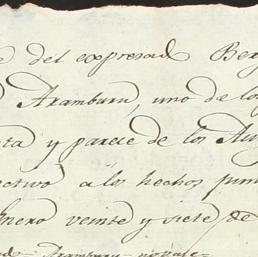 del expresad Ber
Aramburu, uno de los
ta y parece de los Au
ectivo a los hechos pun
Enero veinte y siete de
Aramburu